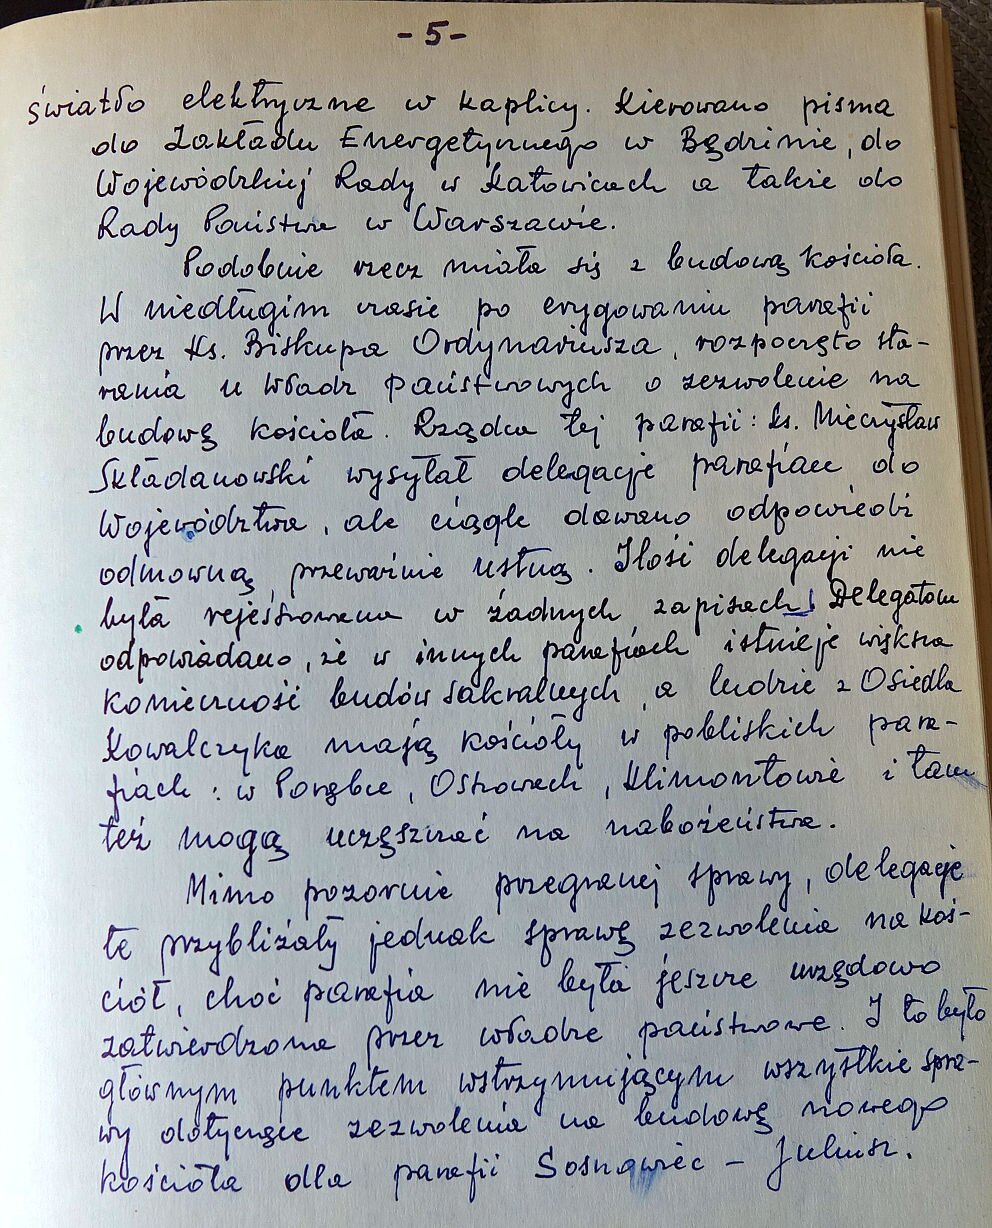 - 5 -
światło elektryczne w kaplicy. Kierowano pisma
do Zakładu Energetycznego w Będzinie, do
Wojewódzkiej Rady w Katowicach a także do
Rady Państwa w Warszawie.
Podobnie rzecz miała się z budową kościoła.
W niedługim czasie po erygowaniu parafii
przez Ks. Biskupa Ordynariusza, rozpoczęto sta-
rania u władz państwowych o zezwolenie na
budowę kościoła. Rządca tej parafii: ks. Mieczysław
Składanowski wysyłał delegacje parafian do
Województwa, ale ciągle dawano odpowiedź
odmowną, przeważnie ustną. Ilość delegacji nie
była rejestrowana w żadnych zapisach. Delegatom
odpowiadano, że w innych parafiach istnieje większa
konieczność budów sakralnych, a ludzie z Osiedla
Kowalczyka mają kościoły w pobliskich para-
fiach: w Porąbce, Ostrowach, Klimontowie i tam
też mogą uczęszczać na nabożeństwa.
Mimo pozornie przegranej sprawy, delegacje
te przybliżały jednak sprawę zezwolenia na koś-
ciół, choć parafia nie była jeszcze urzędowo
zatwierdzona przez władze państwowe. I to było
głównym punktem wstrzymującym wszystkie spra-
wy dotyczące zezwolenia na budowę nowego
kościoła dla parafii Sosnowiec - Juliusz.